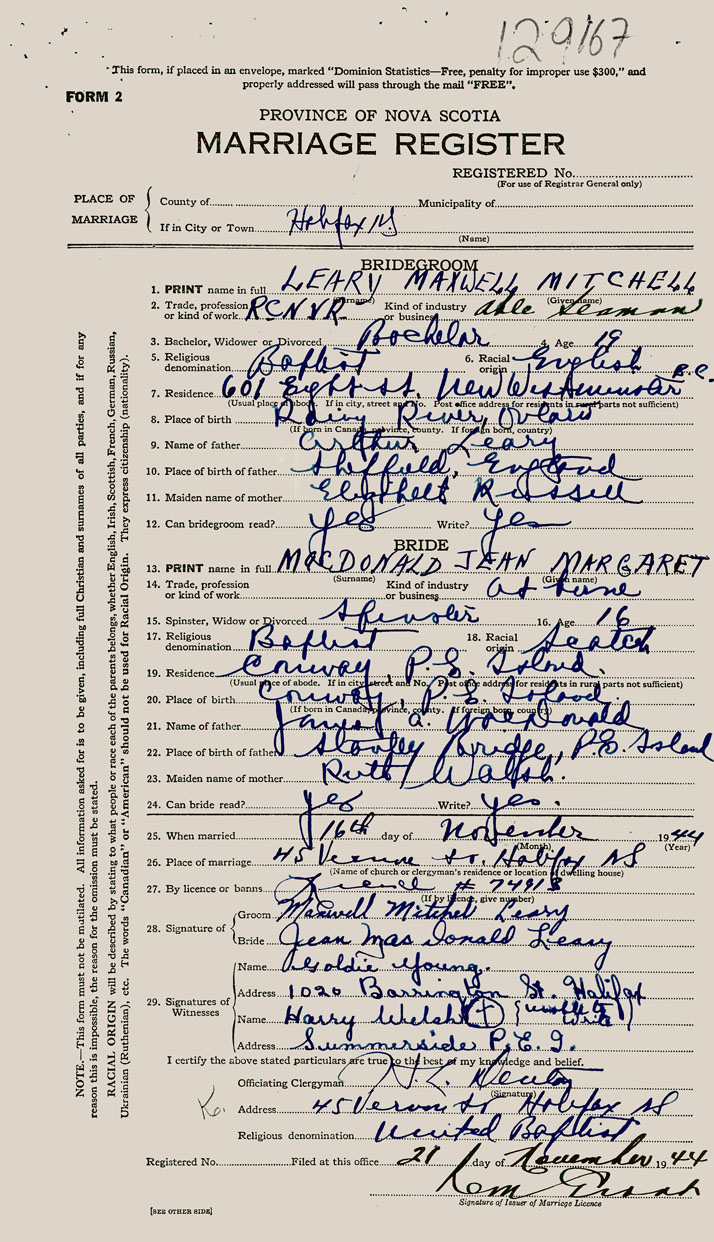 129167
"This form, if placed in an envelope, marked "Dominion Statistics—Free, penalty for improper use $300," and
properly addressed will pass through the mail "FREE".
FORM 2
PROVINCE OF NOVA SCOTIA
MARRIAGE REGISTER
REGISTERED No.
(For use of Registrar General only)
PLACE OF MARRIAGE
County of Municipality of
If in City or Town Halifax NS
(Name)
BRIDEGROOM
1. PRINT name in full LEARY MAXWELL MITCHELL
(Surname) (Given name)
2. Trade, profession or kind of work RCNVR Kind of industry or business able Seaman
3. Bachelor, Widower or Divorced Bachelor 4. Age 19
5. Religious denomination Baptist 6. Racial origin English
7. Residence 601 Eight St. New Westminster B.C.
(Usual place of abode. If in city, street and No. Post office address for residents in rural parts not sufficient)
8. Place of birth Rainy River, Ontario
(If born in Canada, province, county. If foreign born, country)
9. Name of father Arthur Leary
10. Place of birth of father Sheffield, England
11. Maiden name of mother Elizabeth Russell
12. Can bridegroom read? yes Write? yes
BRIDE
13. PRINT name in full MACDONALD JEAN MARGARET
(Surname) (Given name)
14. Trade, profession or kind of work Kind of industry or business at home
15. Spinster, Widow or Divorced Spinster 16. Age 16
17. Religious denomination Baptist 18. Racial origin Scotch
19. Residence Conway, P.E. Island.
(Usual place of abode. If in city street and No. Post office address for residents in rural parts not sufficient)
20. Place of birth Conway, P.E. Island.
(If born in Canada, province, county. If foreign born, country)
21. Name of father James A. MacDonald
22. Place of birth of father Stanley Bridge, P.E. Island
23. Maiden name of mother Ruth Walsh.
24. Can bride read? yes Write? yes.
25. When married 16th day of November 1944
(Month) (Year)
26. Place of marriage 45 Vernon St. Halifax NS
(Name of church or clergyman's residence or location of dwelling house)
27. By licence or banns # 74913
(If by licence, give number)
28. Signature of
Groom Maxwell Mitchel Leary
Bride Jean MacDonald Leary
29. Signatures of Witnesses
Name Goldie Young.
Address 1020 Barrington St. Halifax
Name Harry Welsh + (unable to write)
Address Summerside P.E.I.
I certify the above stated particulars are true to the best of my knowledge and belief.
Officiating Clergyman
(Signature)
Address 45 Vernon St Halifax NS
Religious denomination United Baptist
Registered No. Filed at this office 21 day of November 1944
Signature of Issuer of Marriage Licence
[SEE OTHER SIDE]
NOTE.—This form must not be mutilated. All information asked for is to be given, including full Christian and surnames of all parties, and if for any
reason this is impossible, the reason for the omission must be stated.
RACIAL ORIGIN will be described by stating to what people or race each of the parents belongs, whether English, Irish, Scottish, French, German, Russian,
Ukrainian (Ruthenian), etc. The words "Canadian" or "American" should not be used for Racial Origin. They express citizenship (nationality).